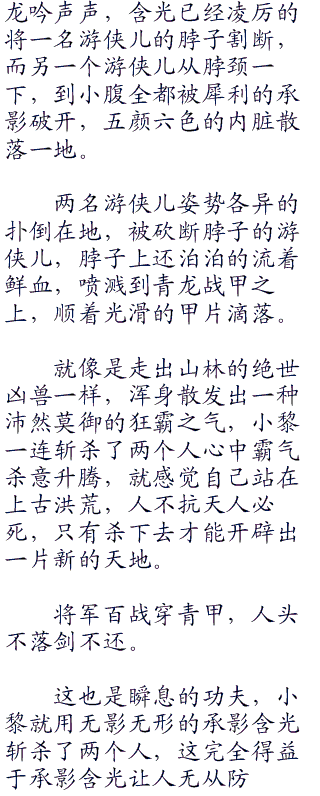 龙吟声声，含光已经凌厉的
将一名游侠儿的脖子割断，
而另一个游侠儿从脖颈一
下，到小腹全都被犀利的承
影破开，五颜六色的内脏散
落一地。
两名游侠儿姿势各异的
扑倒在地，被砍断脖子的游
侠儿，脖子上还泊泊的流着
鲜血，喷溅到青龙战甲之
上，顺着光滑的甲片滴落。
就像是走出山林的绝世
凶兽一样，浑身散发出一种
沛然莫御的狂霸之气，小黎
一连斩杀了两个人心中霸气
杀意升腾，就感觉自己站在
上古洪荒，人不抗天人必
死，只有杀下去才能开辟出
一片新的天地。
将军百战穿青甲，人头
不落剑不还。
这也是瞬息的功夫，小
黎就用无影无形的承影含光
斩杀了两个人，这完全得益
于承影含光让人无从防